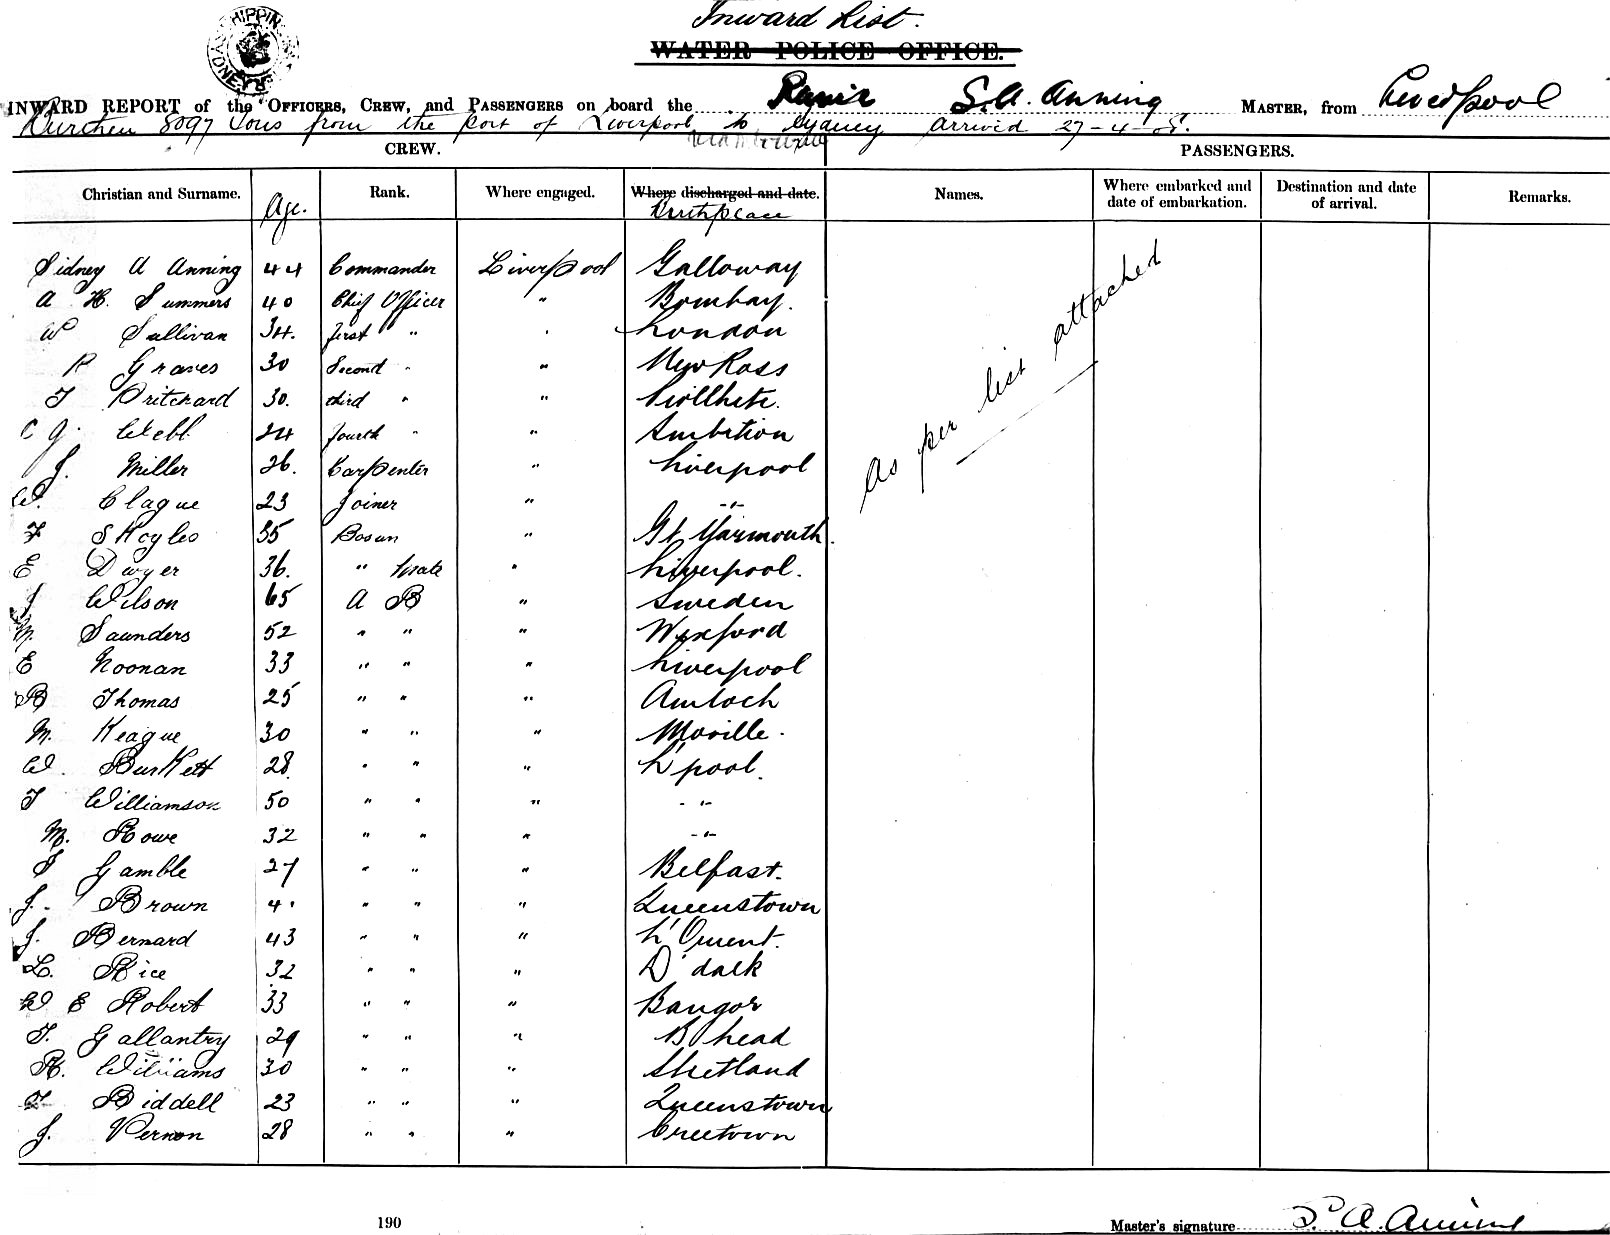 Inward List.
WATER POLICE OFFICE.
SHIPPING SYDNEY
INWARD REPORT of the OFFICERS, CREW, and PASSENGERS on board the S. A. Anning MASTER, from Liverpool
Burthen 8097 Tons from the port of Liverpool to Sydney arrived 27-4-05.
CREW. PASSENGERS.
Christian and Surname. Age. Rank. Where engaged. Where discharged and date. Birthplace Names. Where embarked and date of embarkation. Destination and date of arrival. Remarks.
As per list attached
Sidney A Anning 44 Commander Liverpool Galloway
A H. Summers 40 Chief Officer " Bombay.
W Sullivan 34. first " " London
R Graves 30 Second " " New Ross
T Pritchard 30. third " "
C J. Webb 24 fourth " "
J. Miller 26. Carpenter " Liverpool
W. Clague 23 Joiner " "
F Skoyles 35 Bosun " Gt Yarmouth.
E Dwyer 36. " Mate " Liverpool.
J Wilson 65 A B " Sweden
M. Saunders 52 " " " Wexford
E Noonan 33 " " " Liverpool
B Thomas 25 " " " Amloch
M. Keague 30 " " " Moville.
W. Burkett 28. " " " L'pool.
T Williamson 50 " " " - " -
M. Rowe 32 " " " - " -
S Gamble 27 " " " Belfast.
J. Brown 4 " " " Queenstown
J. Bernard 43 " " " L'Orient.
L. Rice 32 " " " D'dalk
W E Robert 33 " " " Bangor
T. Gallantry 29 " " " B head
R. Williams 30 " " " Shetland
T Biddell 23 " " " Queenstown
J. Vernon 28 " " " Creetown
190
Master's signature S. A. Anning